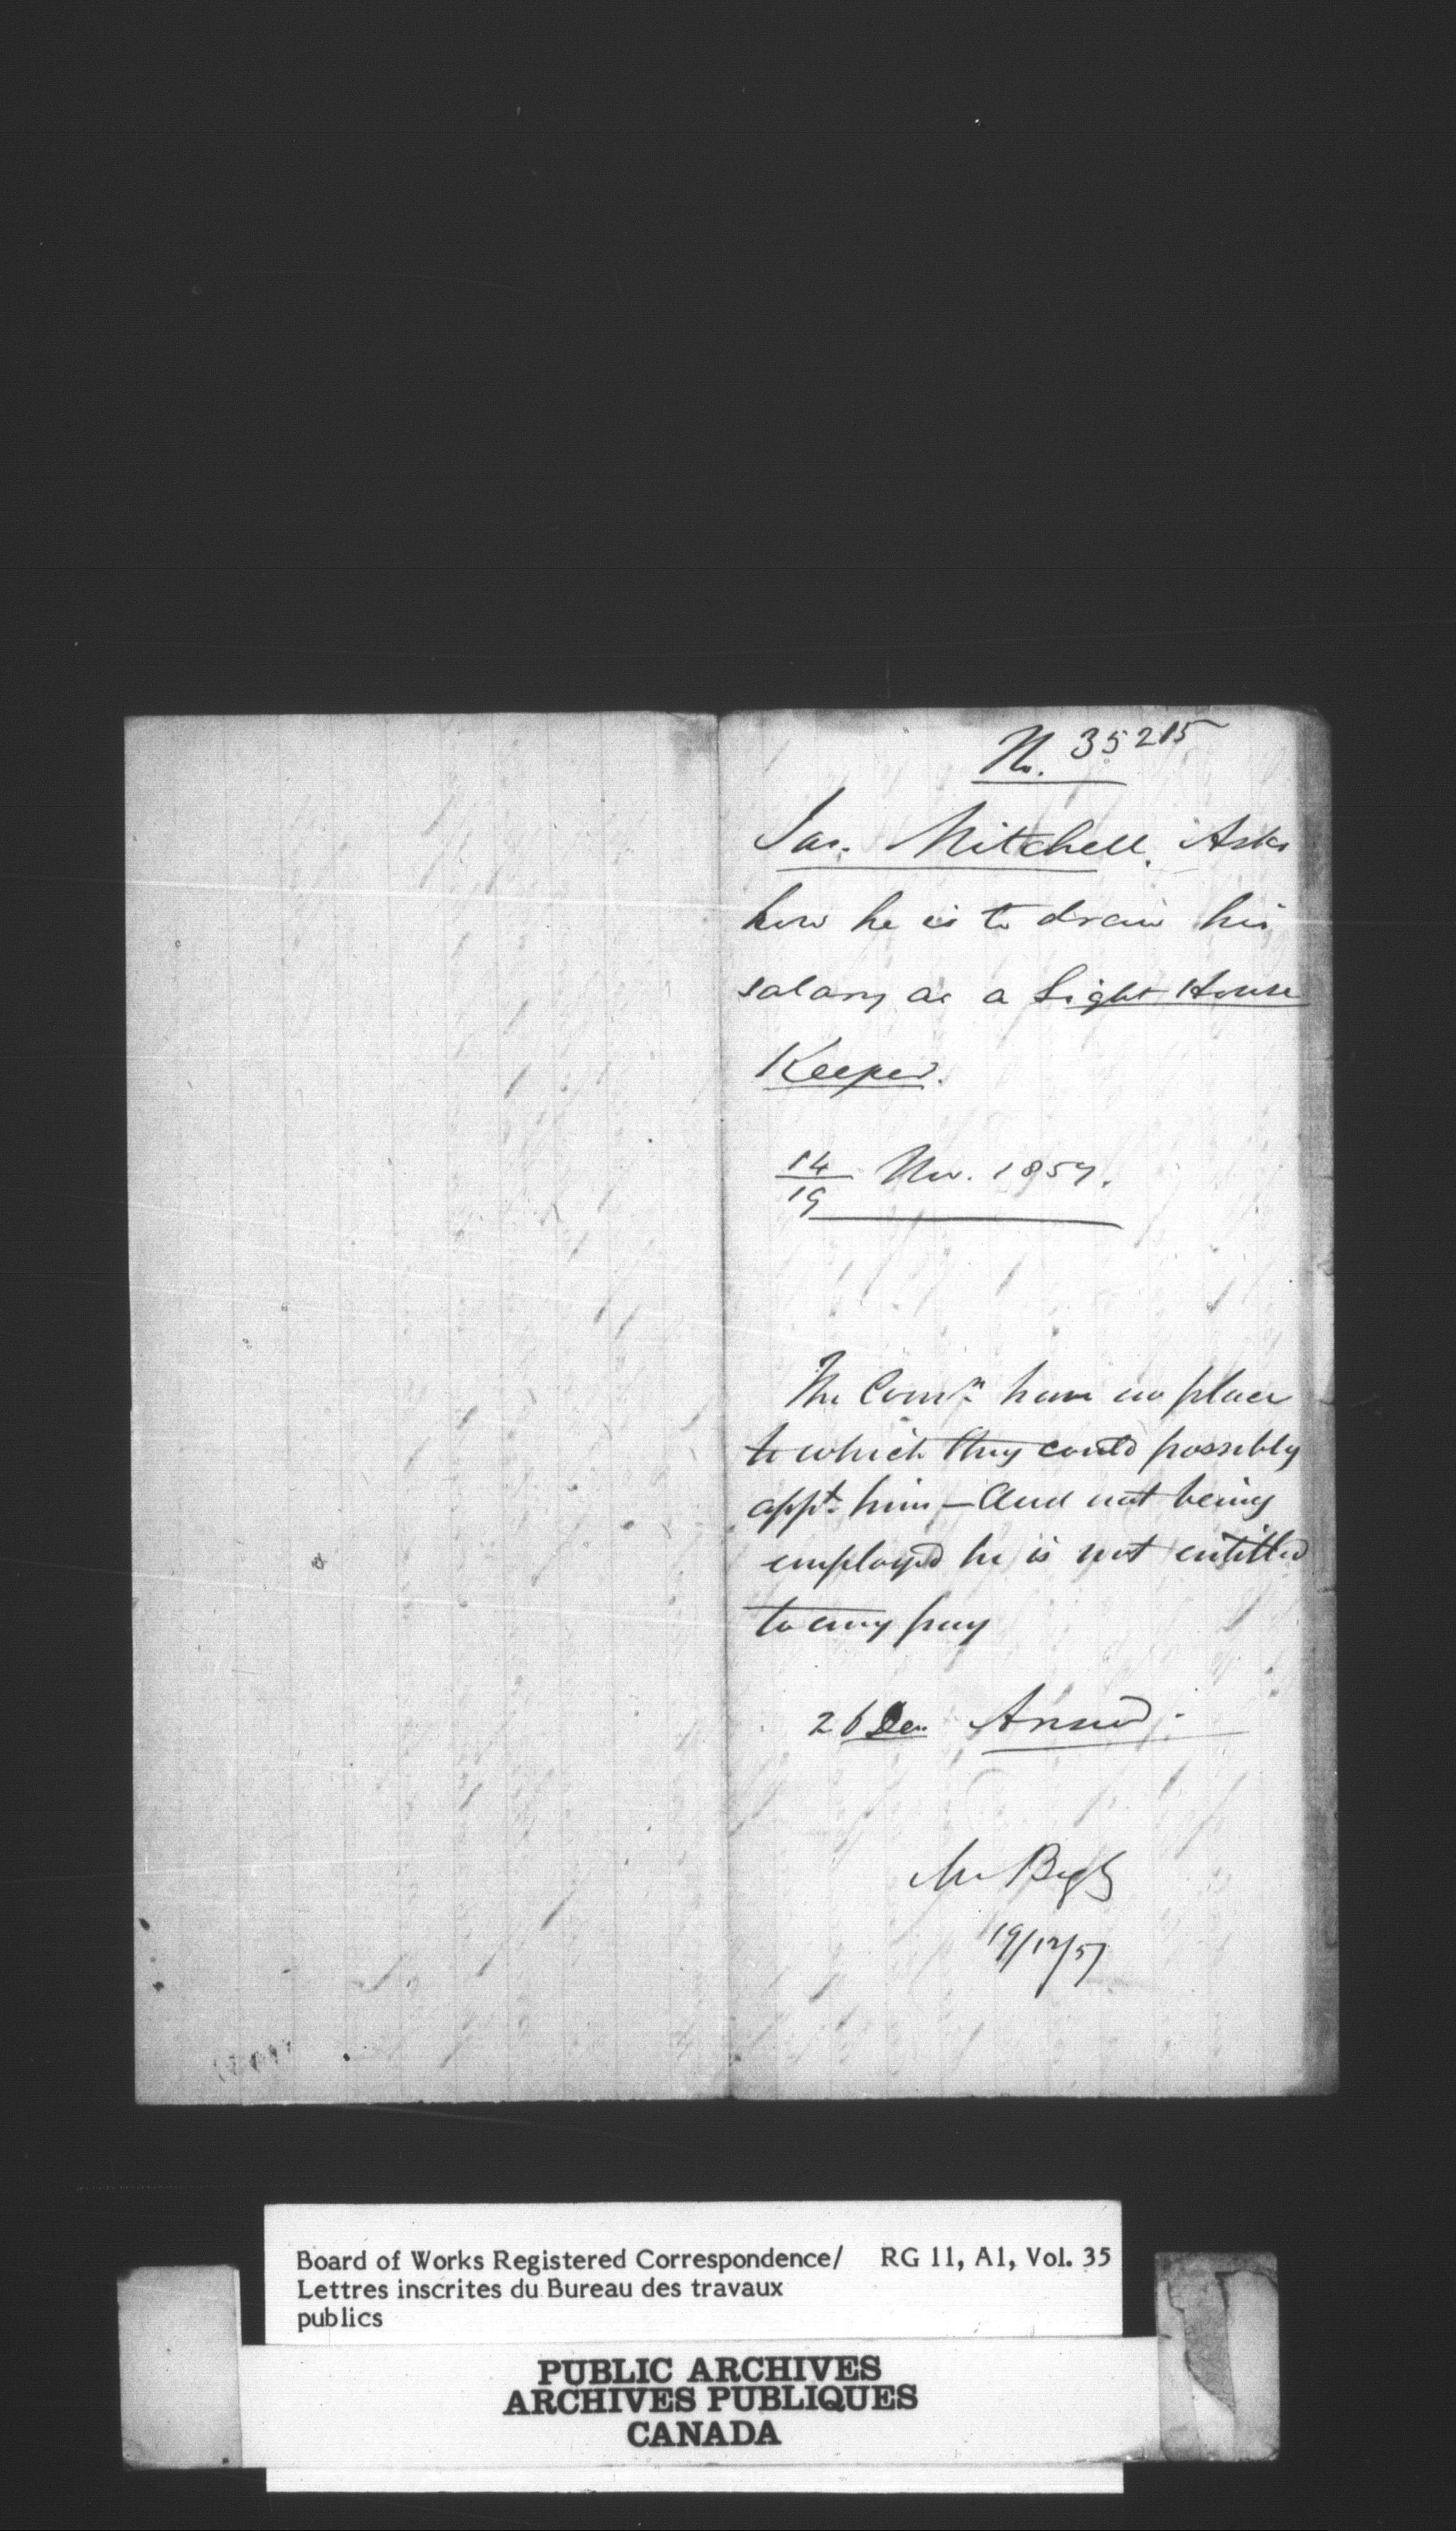 No. 35215
Jas. Mitchell. Asks
how he is to draw his
salary as a Light House
Keeper.
14/19 Nov. 1857.
The Comrs have no place
to which they could possibly
appt him — And not being
employed he is not entitled
to any pay
26 Dec Answd.
Mr Begly
19/12/57
Board of Works Registered Correspondence/ RG 11, A1, Vol. 35
Lettres inscrites du Bureau des travaux
publics
PUBLIC ARCHIVES
ARCHIVES PUBLIQUES
CANADA